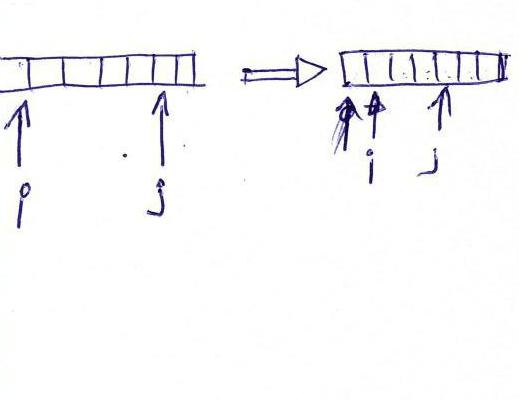 i j i j